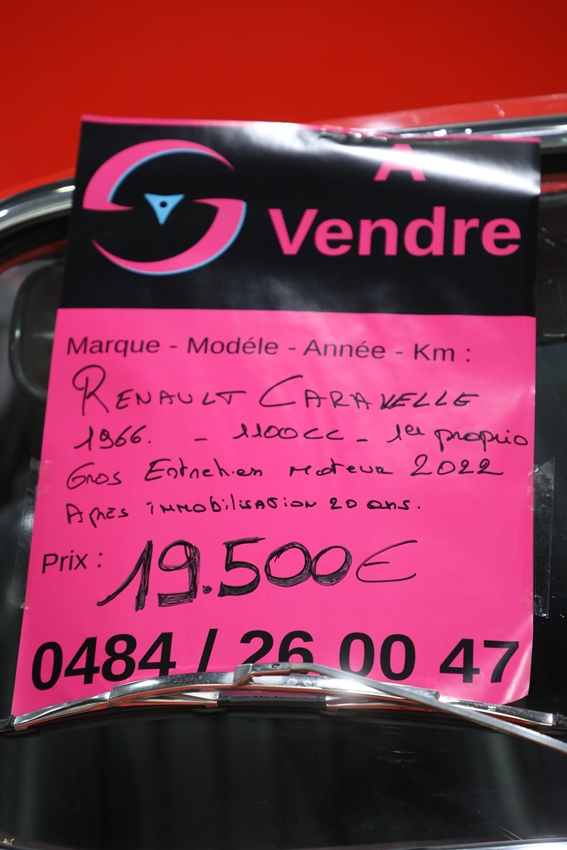 A
Vendre
Marque - Modéle - Année - Km :
RENAULT CARAVELLE
1966. - 1100cc - 1er proprio
Gros Entretien moteur 2022
Après immobilisation 20 ans.
Prix : 19.500€
0484 / 26 00 47